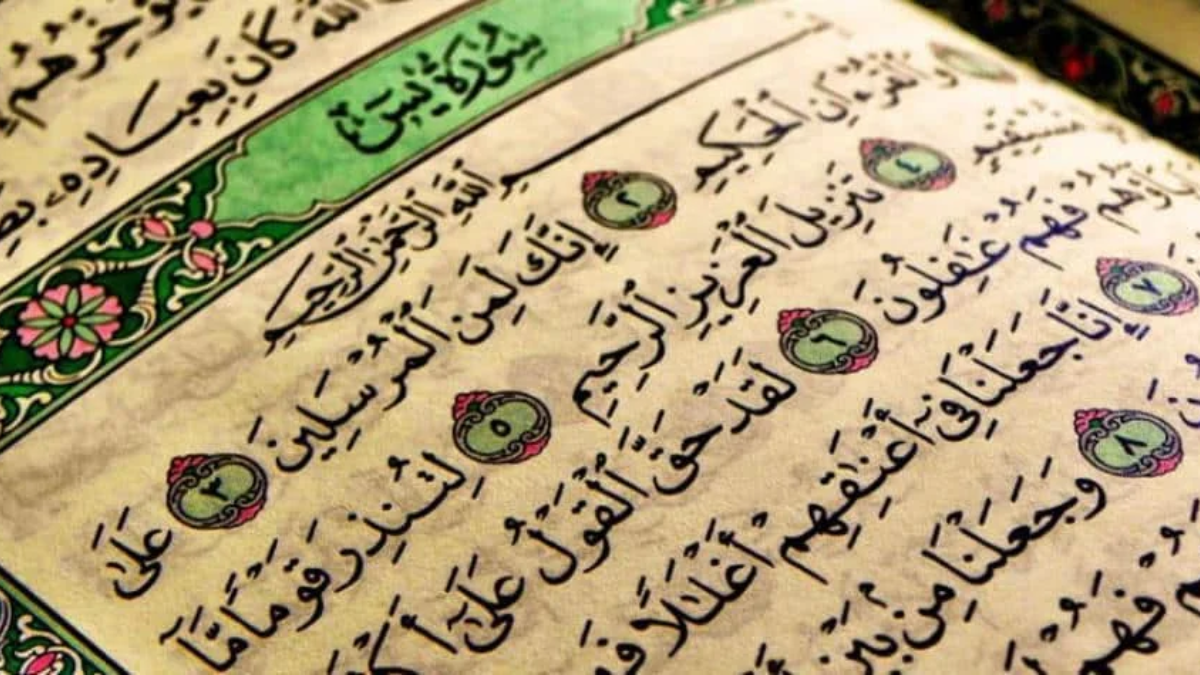 ٱللَّهَ كَانَ بِعِبَادِهِۦ
سُورَةُ يسٓ
بِسْمِ ٱللَّهِ ٱلرَّحْمَٰنِ ٱلرَّحِيمِ
وَٱلْقُرْءَانِ ٱلْحَكِيمِ ٢ إِنَّكَ لَمِنَ ٱلْمُرْسَلِينَ ٣ عَلَىٰ
مُّسْتَقِيمٍ ٤ تَنزِيلَ ٱلْعَزِيزِ ٱلرَّحِيمِ ٥ لِتُنذِرَ قَوْمًا مَّآ
فَهُمْ غَٰفِلُونَ ٦ لَقَدْ حَقَّ ٱلْقَوْلُ عَلَىٰٓ
٧ إِنَّا جَعَلْنَا فِىٓ أَعْنَٰقِهِمْ أَغْلَٰلًا
٨ وَجَعَلْنَا مِنۢ بَيْنِ
فَهُمْ